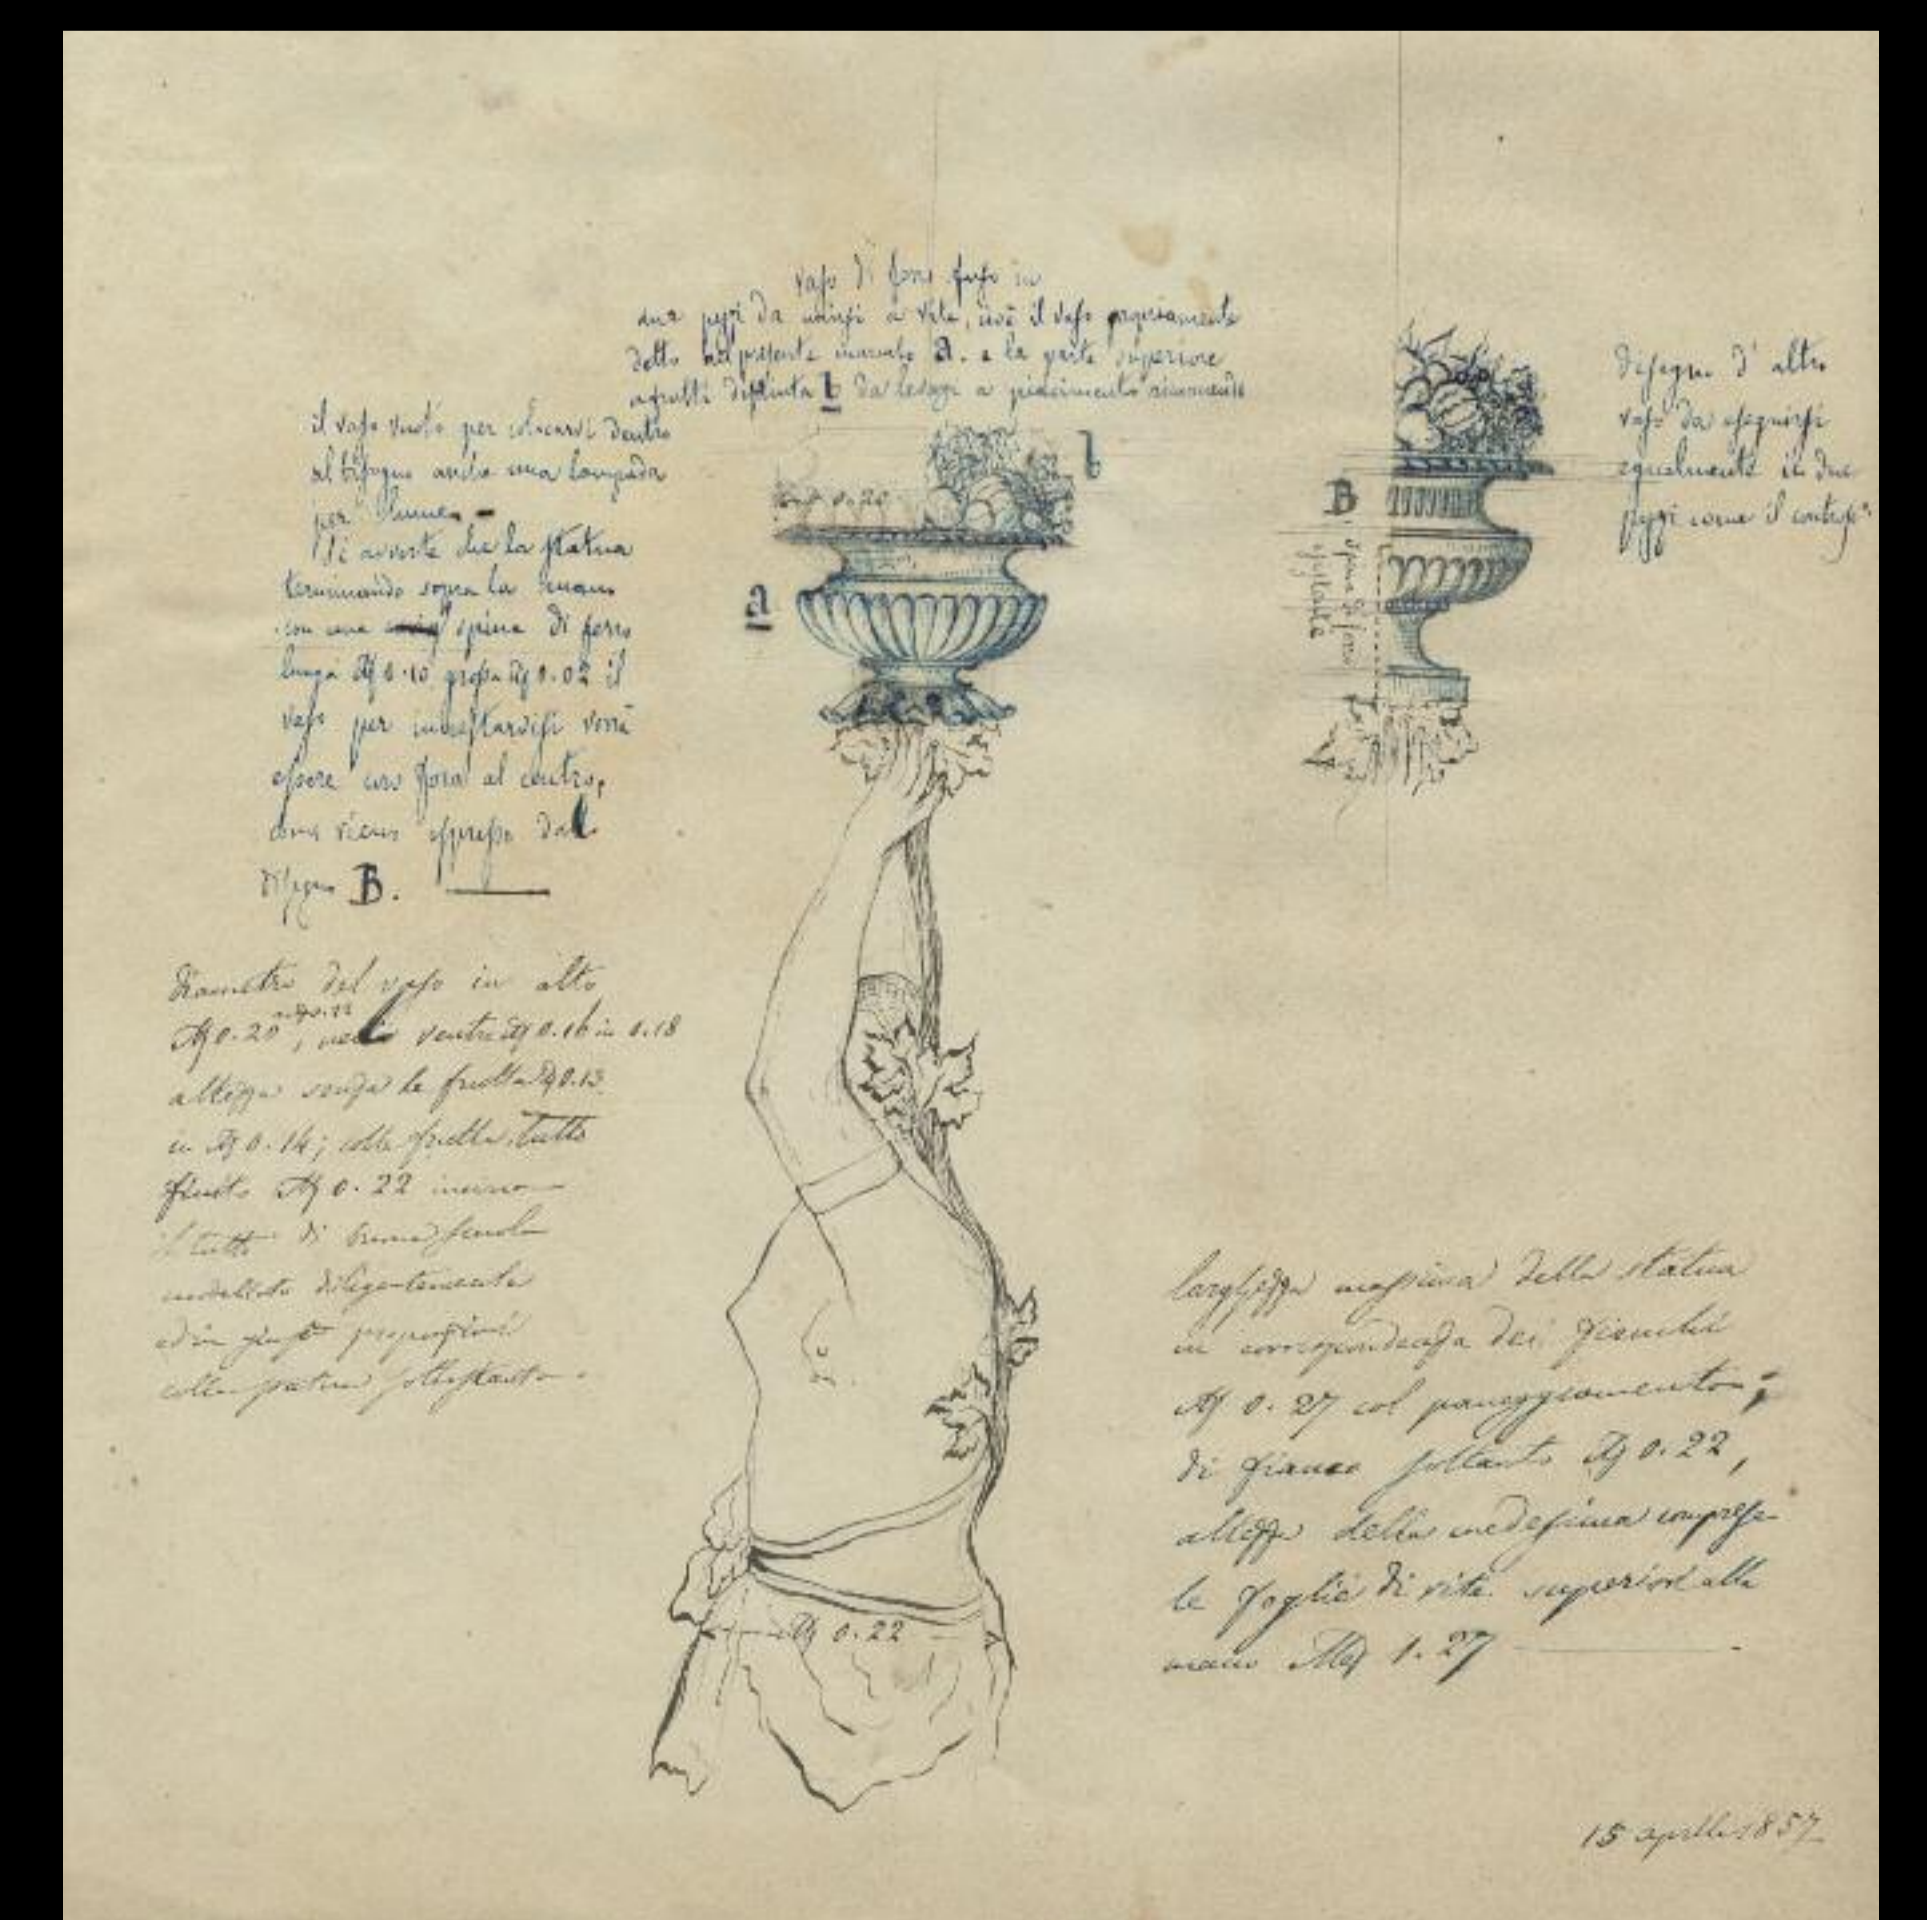 vaso di ferro fuso in
due pezzi da unirsi a vite, cioè il vaso propriamente
detto nel presente marcato a. e la parte superiore
a frutti distinta b da levarsi a piacimento
il vaso vuoto per collocarvi dentro
al bisogno anche una lampada
per lume
Si avverte che la statua
terminando sopra la mano
con una spina di ferro
lunga M 0.10 grossa M 0.02 il
vaso per innestarvisi vorrà
essere con foro al centro,
come viene espresso dal
disegno B.
b
0.20
a
B
spina di ferro
esistente
disegno d'altro
vaso da eseguirsi
egualmente in due
pezzi come il
diametro del vaso in alto
M 0.20, nel ventre M 0.16 in 0.18
altezza senza le frutta M 0.13
in M 0.14; colle frutta tutto
M 0.22
il tutto di buona
modellato diligentemente
ed in giuste proporzioni
colla statua sottostante.
larghezza massima della statua
in corrispondenza dei fianchi
M 0.27 col paneggiamento;
di fianco soltanto M 0.22,
altezza della medesima compresa
le foglie di vite superiori alla
mano M 1.27
M 0.22
15 aprile 1857